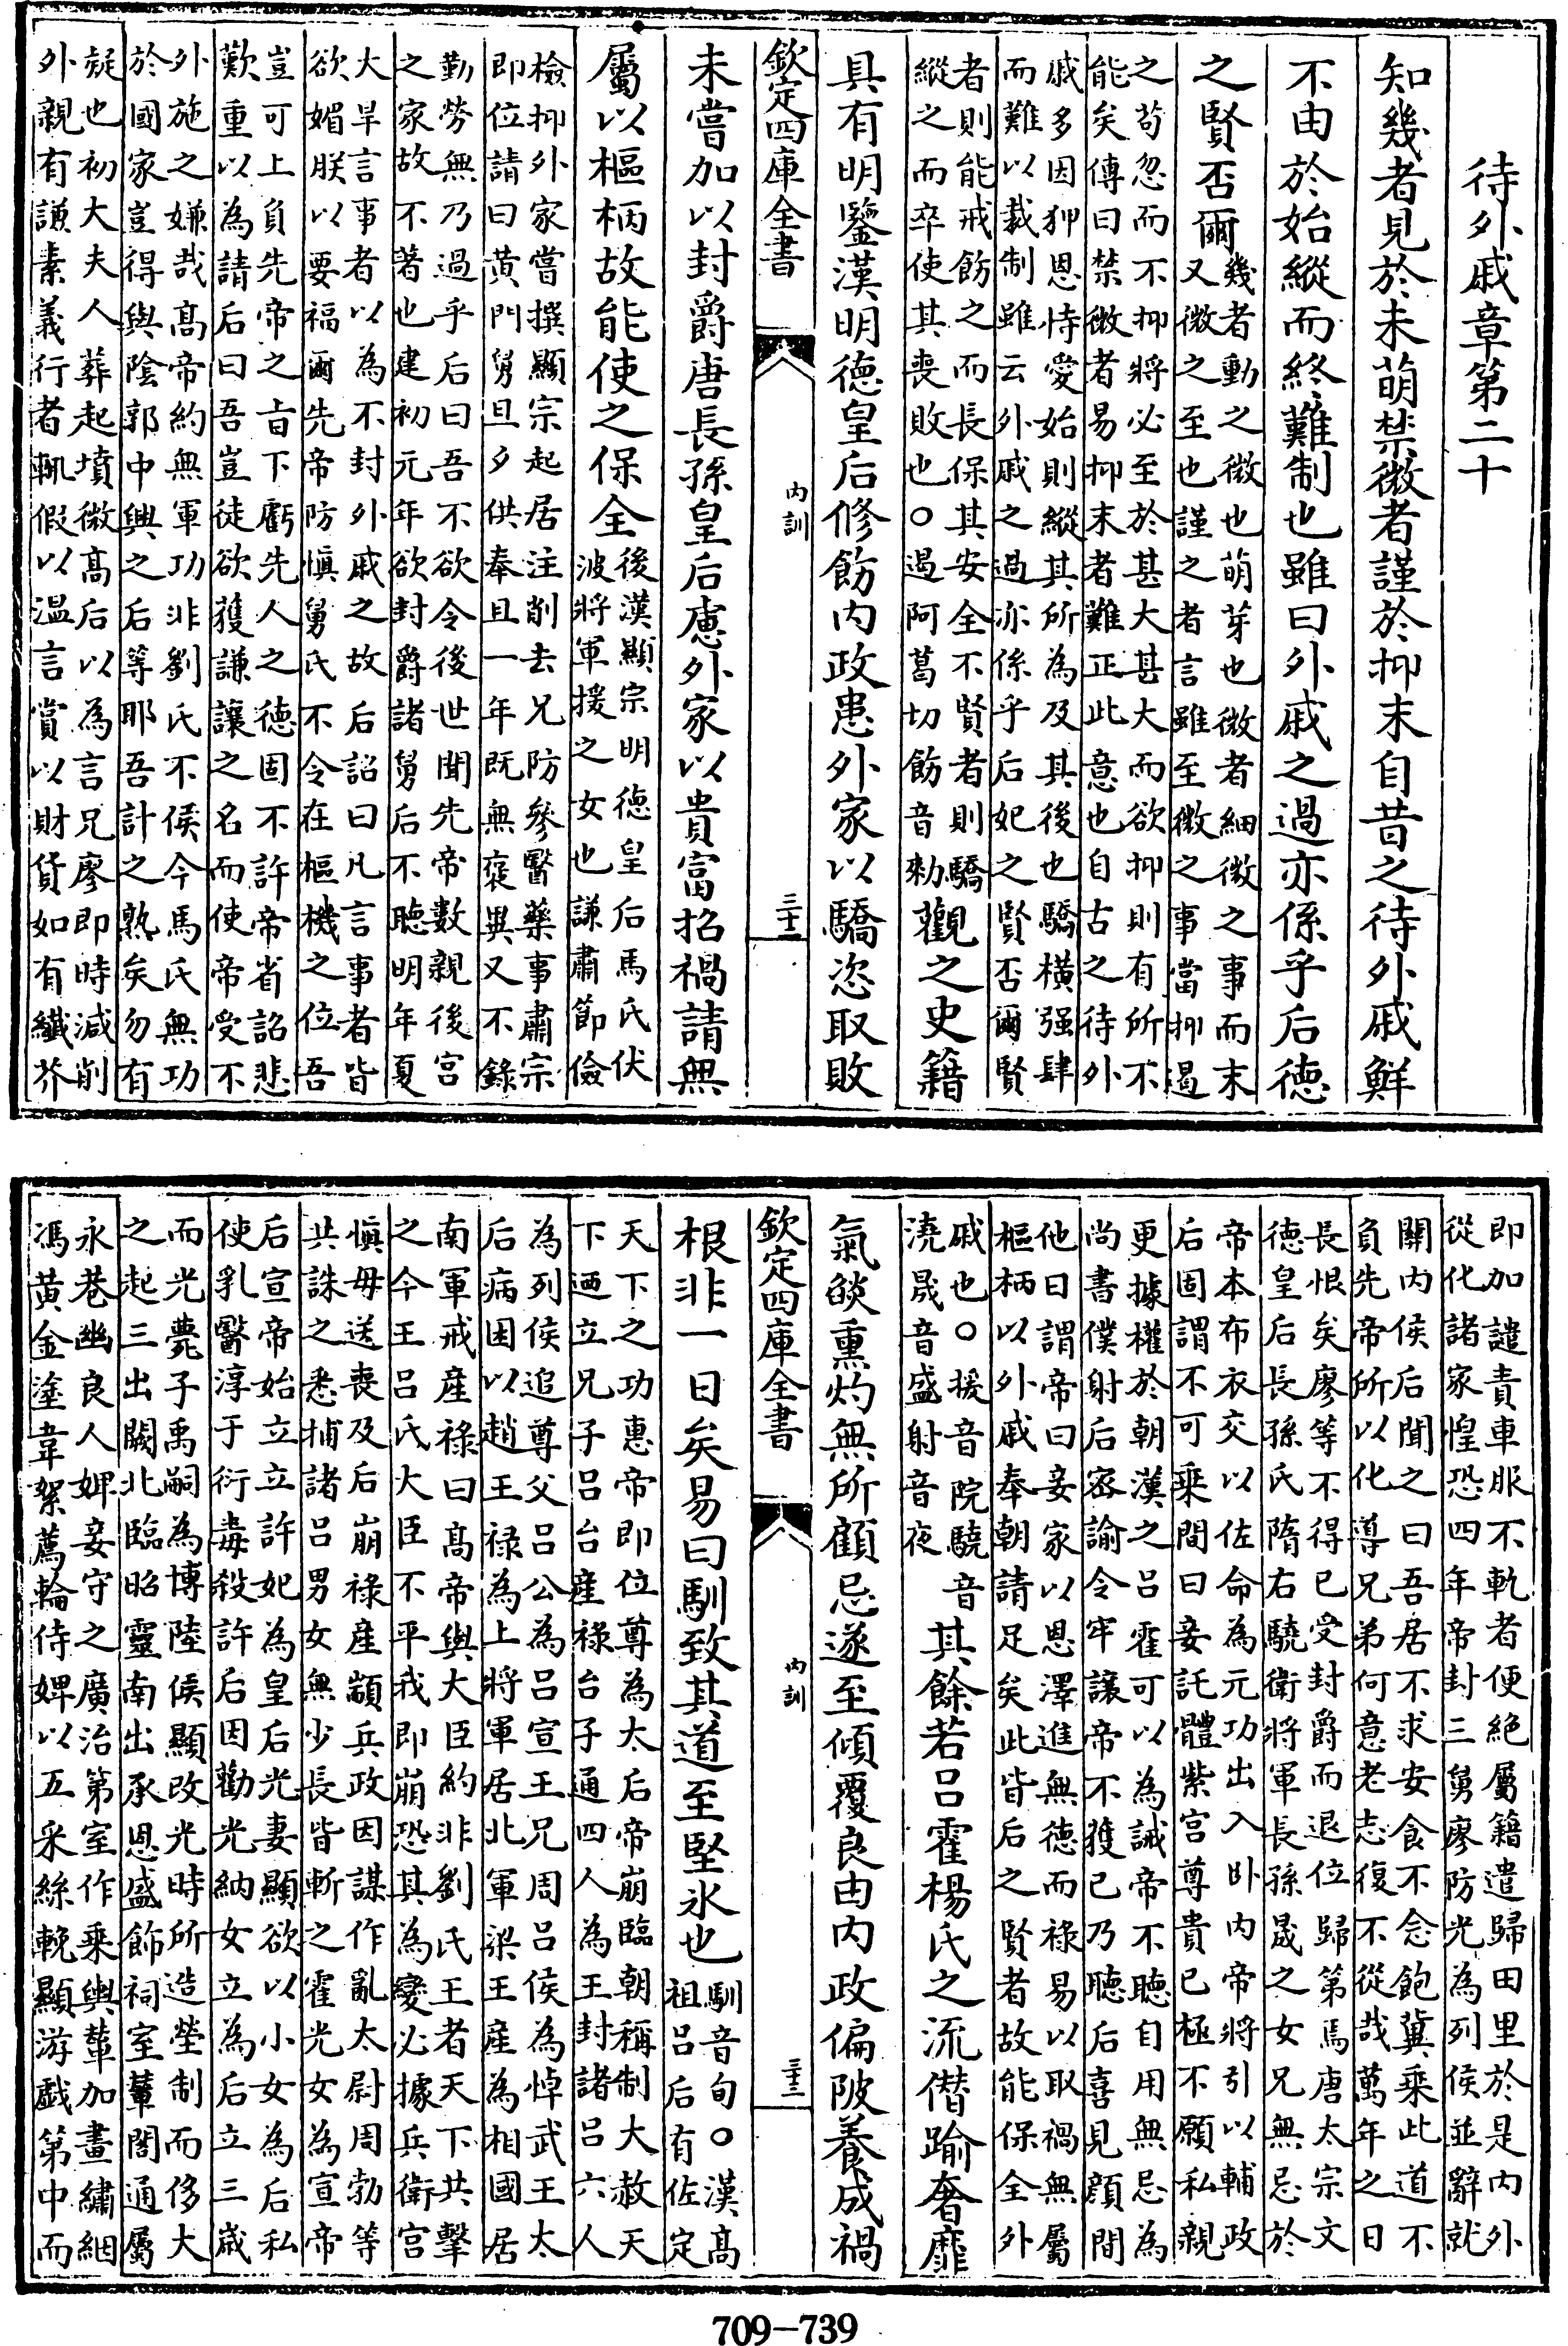 待外戚章第二十
知幾者見於未萌禁微者謹於抑末自昔之待外戚鮮
不由於始縱而終難制也雖曰外戚之過亦係乎后德
之賢否爾
幾者動之微也萌芽也微者細微之事而末
又微之至也謹之者言雖至微之事當抑遏
之苟忽而不抑將必至於甚大甚大而欲抑則有所不
能矣傳曰禁微者易抑末者難正此意也自古之待外
戚多因狎恩恃愛始則縱其所為及其後也驕橫强肆
而難以裁制雖云外戚之過亦係乎后妃之賢否爾賢
者則能戒飭之而長保其安全不賢者則驕
縱之而卒使其喪敗也○遏阿葛切飭音勑
觀之史籍
具有明鑒漢明德皇后修飭内政患外家以驕恣取敗
欽定四庫全書
内訓
三十二
未嘗加以封爵唐長孫皇后慮外家以貴富招禍請無
屬以樞柄故能使之保全
後漢顯宗明德皇后馬氏伏
波將軍援之女也謙肅節儉
檢抑外家嘗撰顯宗起居注削去兄防參醫藥事肅宗
即位請曰黄門舅旦夕供奉且一年既無褒異又不錄
勤勞無乃過乎后曰吾不欲令後世聞先帝數親後宫
之家故不著也建初元年欲封爵諸舅后不聽明年夏
大旱言事者以為不封外戚之故后詔曰凡言事者皆
欲媚朕以要福爾先帝防慎舅氏不令在樞機之位吾
豈可上負先帝之㫖下虧先人之德固不許帝省詔悲
歎重以為請后曰吾豈徒欲獲謙讓之名而使帝受不
外施之嫌哉高帝約無軍功非劉氏不侯今馬氏無功
於國家豈得與陰郭中興之后等耶吾計之熟矣勿有
疑也初大夫人葬起墳微高后以為言兄廖即時減削
外親有謙素義行者輒假以温言賞以財貨如有纖芥
即加譴責車服不軌者便絶屬籍遣歸田里於是内外
從化諸家惶恐四年帝封三舅廖防光為列侯並辭就
關内侯后聞之曰吾居不求安食不念飽冀乗此道不
負先帝所以化導兄弟何意老志復不從哉萬年之日
長恨矣廖等不得已受封爵而退位歸第焉唐太宗文
德皇后長孫氏隋右驍衛將軍長孫晟之女兄無忌於
帝本布衣交以佐命為元功出入卧内帝將引以輔政
后固謂不可乗間曰妾託體紫宫尊貴已極不願私親
更據權於朝漢之吕霍可以為誡帝不聽自用無忌為
尚書僕射后密諭令牢讓帝不獲已乃聽后喜見顔間
他日謂帝曰妾家以恩澤進無德而祿易以取禍無屬
樞柄以外戚奉朝請足矣此皆后之賢者故能保全外
戚也○援音院驍音
澆晟音盛射音夜
其餘若吕霍楊氏之流僭踰奢靡
氣燄熏灼無所顧忌遂至傾覆良由内政偏陂養成禍
欽定四庫全書
内訓
三十三
根非一日矣易曰馴致其道至堅氷也
馴音旬○漢高
祖吕后有佐定
天下之功惠帝即位尊為太后帝崩臨朝稱制大赦天
下迺立兄子吕台産禄台子通四人為王封諸吕六人
為列侯追尊父吕公為吕宣王兄周吕侯為悼武王太
后病困以趙王禄為上將軍居北軍梁王産為相國居
南軍戒産禄曰高帝與大臣約非劉氏王者天下共擊
之今王吕氏大臣不平我即崩恐其為變必據兵衛宫
慎毋送喪及后崩禄産顓兵政因謀作亂太尉周勃等
共誅之悉捕諸吕男女無少長皆斬之霍光女為宣帝
后宣帝始立立許妃為皇后光妻顯欲以小女為后私
使乳醫淳于衍毒殺許后因勸光納女立為后立三歲
而光薨子禹嗣為博陸侯顯改光時所造塋制而侈大
之起三出闕北臨昭靈南出承恩盛飾祠室輦閣通屬
永巷幽良人婢妾守之廣治第室作乗輿輦加畫繡絪
馮黄金塗韋絮薦輪侍婢以五采絲輓顯游戲第中而
709—739